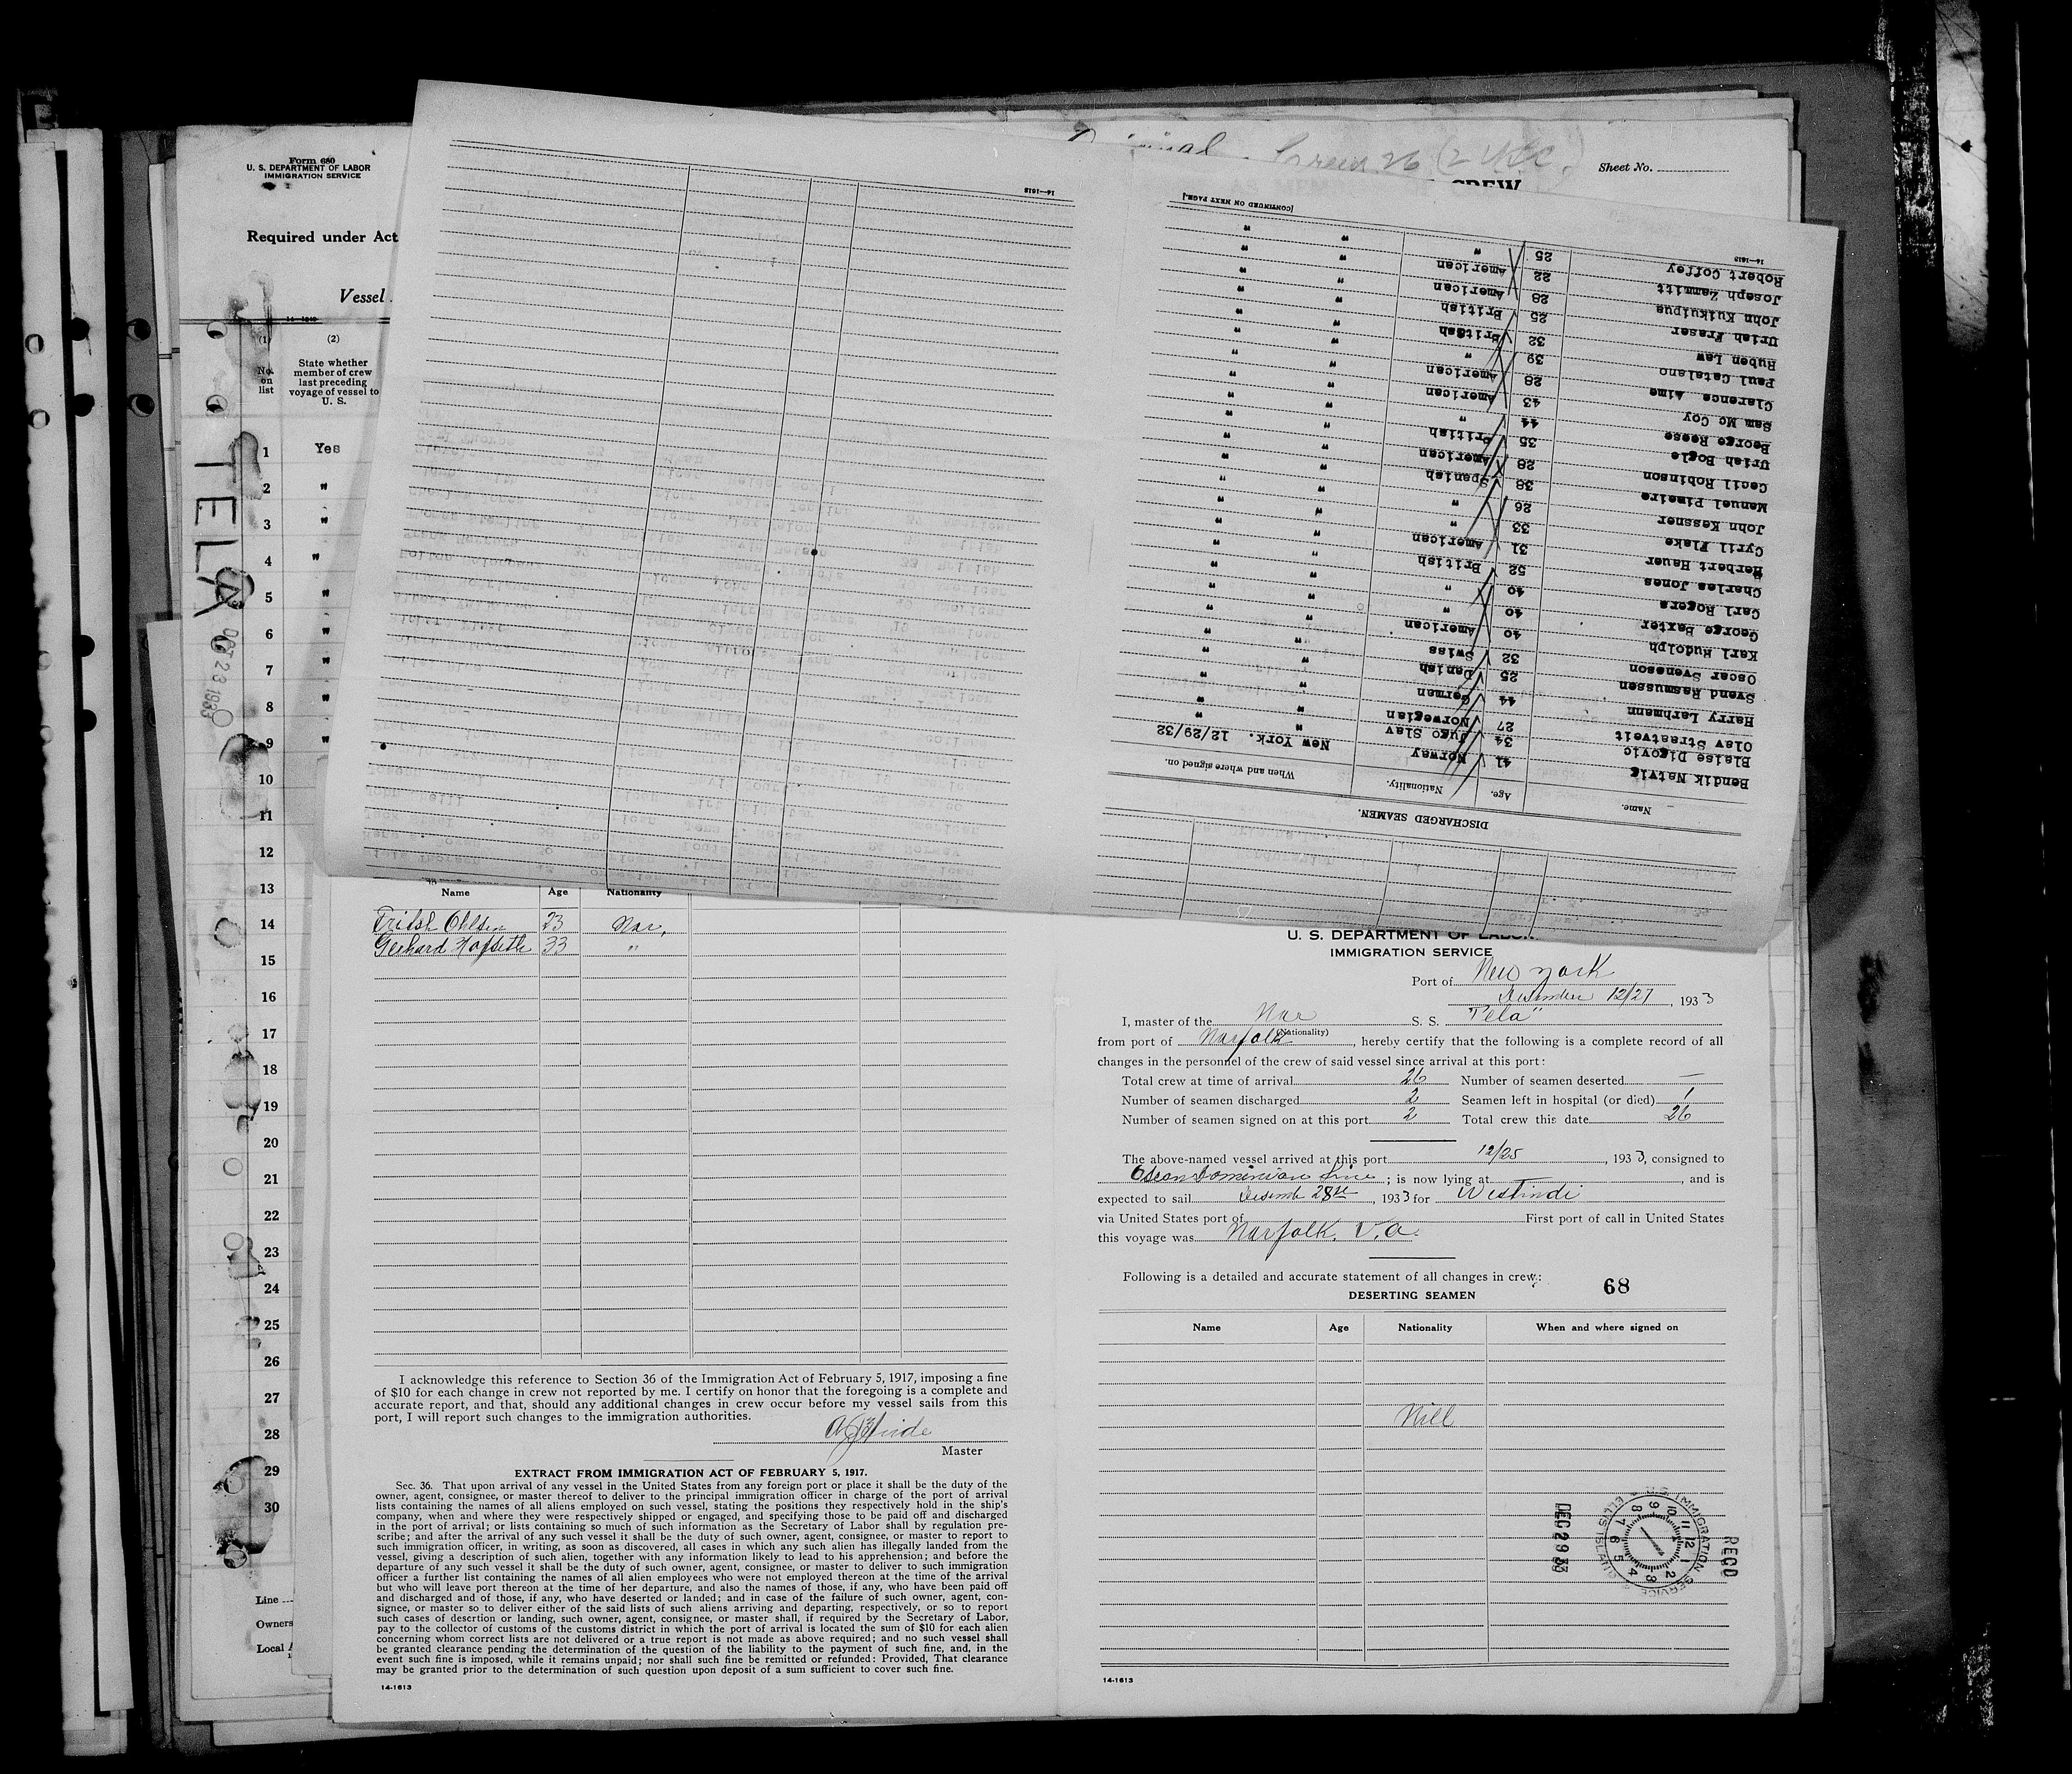 Form 680
U. S. DEPARTMENT OF LABOR
IMMIGRATION SERVICE
Crew 26
Sheet No.
CREW
Required under Act
Vessel
(1)
No. on list
(2)
State whether
member of crew
last preceding
voyage of vessel to
U. S.
1 Yes
2 "
3 "
4 "
5 "
6 "
7 "
8 "
9 "
10
11
12
13
14
15
16
17
18
19
20
21
22
23
24
25
26
27
28
29
30
TELA
OCT 23 1933
Line
Owners
Local
14—1613
DISCHARGED SEAMEN.
Name. Age. Nationality. When and where signed on.
Bendik Natvig 41 Norway New York. 12/29/32
Blaise Digovic 34 Jugo Slav " "
Olav Straatveit 27 Norwegian " "
Harry Lerhmann 44 German " "
Svend Rasmussen 25 Danish " "
Oscar Svenson 32 Swiss " "
Karl Rudolph 40 American " "
George Baxter 40 " " "
Carl Rogers 40 " " "
Charles Jones 52 British " "
Herbert Hauer 31 American " "
Cyril Flake 33 " " "
John Kessner 26 " " "
Manuel Pimeire 38 Spanish " "
Cecil Robinson 28 American " "
Uriah Bogle 35 British " "
George Reese 44 " " "
Sam Mc Coy 43 American " "
Clarence Aime 28 American " "
Paul Catalano 39 " " "
Ruben Law 32 British " "
Uriah Fraser 25 British " "
John Kuikuipua 28 American " "
Joseph Zammitt 22 American " "
Robert Coffey 25 " " "
14—1613
[CONTINUED ON NEXT PAGE.]
Name Age Nationality
Ohlsen 23 Nor.
Gerhard Hofseth 33 "
I acknowledge this reference to Section 36 of the Immigration Act of February 5, 1917, imposing a fine
of $10 for each change in crew not reported by me. I certify on honor that the foregoing is a complete and
accurate report, and that, should any additional changes in crew occur before my vessel sails from this
port, I will report such changes to the immigration authorities.
Master
EXTRACT FROM IMMIGRATION ACT OF FEBRUARY 5, 1917.
Sec. 36. That upon arrival of any vessel in the United States from any foreign port or place it shall be the duty of the
owner, agent, consignee, or master thereof to deliver to the principal immigration officer in charge of the port of arrival
lists containing the names of all aliens employed on such vessel, stating the positions they respectively hold in the ship's
company, when and where they were respectively shipped or engaged, and specifying those to be paid off and discharged
in the port of arrival; or lists containing so much of such information as the Secretary of Labor shall by regulation pre-
scribe; and after the arrival of any such vessel it shall be the duty of such owner, agent, consignee, or master to report to
such immigration officer, in writing, as soon as discovered, all cases in which any such alien has illegally landed from the
vessel, giving a description of such alien, together with any information likely to lead to his apprehension; and before the
departure of any such vessel it shall be the duty of such owner, agent, consignee, or master to deliver to such immigration
officer a further list containing the names of all alien employees who were not employed thereon at the time of the arrival
but who will leave port thereon at the time of her departure, and also the names of those, if any, who have been paid off
and discharged and of those, if any, who have deserted or landed; and in case of the failure of such owner, agent, con-
signee, or master so to deliver either of the said lists of such aliens arriving and departing, respectively, or so to report
such cases of desertion or landing, such owner, agent, consignee, or master shall, if required by the Secretary of Labor,
pay to the collector of customs of the customs district in which the port of arrival is located the sum of $10 for each alien
concerning whom correct lists are not delivered or a true report is not made as above required; and no such vessel shall
be granted clearance pending the determination of the question of the liability to the payment of such fine, and, in the
event such fine is imposed, while it remains unpaid; nor shall such fine be remitted or refunded: Provided, That clearance
may be granted prior to the determination of such question upon deposit of a sum sufficient to cover such fine.
14-1613
U. S. DEPARTMENT OF LABOR
IMMIGRATION SERVICE
Port of New York
Desember 12/27, 1933
I, master of the Nor S. S. "Tela"
(Nationality)
from port of Norfolk, hereby certify that the following is a complete record of all
changes in the personnel of the crew of said vessel since arrival at this port:
Total crew at time of arrival 26 Number of seamen deserted —
Number of seamen discharged 2 Seamen left in hospital (or died) 1
Number of seamen signed on at this port 2 Total crew this date 26
The above-named vessel arrived at this port 12/25, 1933, consigned to
Ocean Dominion Line; is now lying at —, and is
expected to sail Desemb 28th, 1933 for Westindi
via United States port of First port of call in United States
this voyage was Norfolk. V.a.
Following is a detailed and accurate statement of all changes in crew:
68
DESERTING SEAMEN
Name Age Nationality When and where signed on
Nill
DEC 29 33
U.S. IMMIGRATION SERVICE ELLIS ISLAND
12 1 2 3 4 5 6 7 8 9 10 11
RECD
14-1613